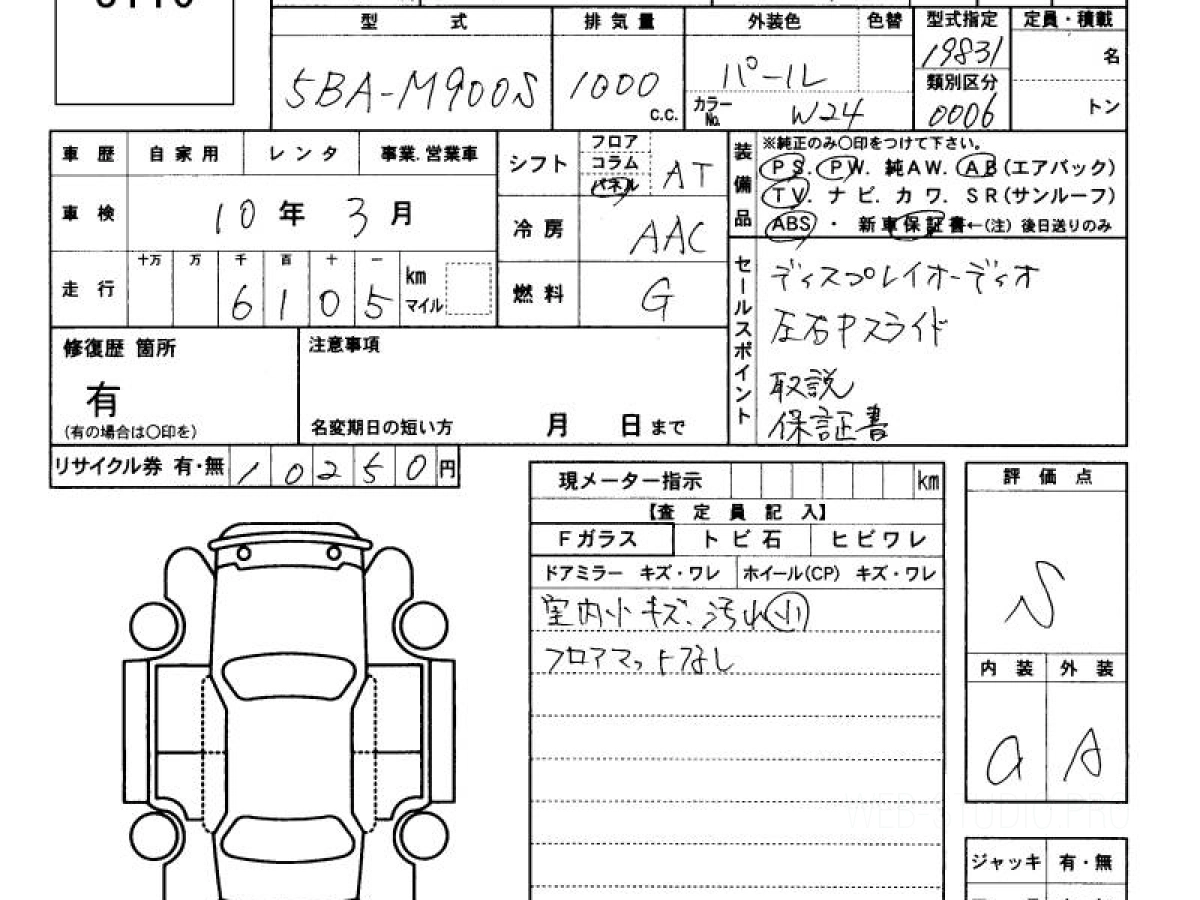 型 式 排気量 外装色 色替 型式指定 定員・積載
5BA-M900S 1000 c.c. パール 19831 名
カラーNo. W24 類別区分 0006 トン
車歴 自家用 レンタ 事業.営業車
車検 10年 3月
走行 十万 万 千 百 十 一
6105 km マイル
シフト フロア コラム パネル AT
冷房 AAC
燃料 G
装備品 ※純正のみ〇印をつけて下さい。
PS. PW. 純AW. AB(エアバック)
TV. ナビ. カワ. SR(サンルーフ)
ABS ・ 新車保証書←(注) 後日送りのみ
セールスポイント
ディスプレイオーディオ
左右Pスライド
取説
保証書
修復歴 箇所
有
(有の場合は〇印を)
注意事項
名変期日の短い方 月 日まで
リサイクル券 有・無 10250円
現メーター指示 km
【査定員記入】
Fガラス トビ石 ヒビワレ
ドアミラー キズ・ワレ ホイール(CP) キズ・ワレ
室内小キズ、汚れ小
フロアマットなし
評価点
S
内装 外装
a A
ジャッキ 有・無
WEB-STUDIO.PRO